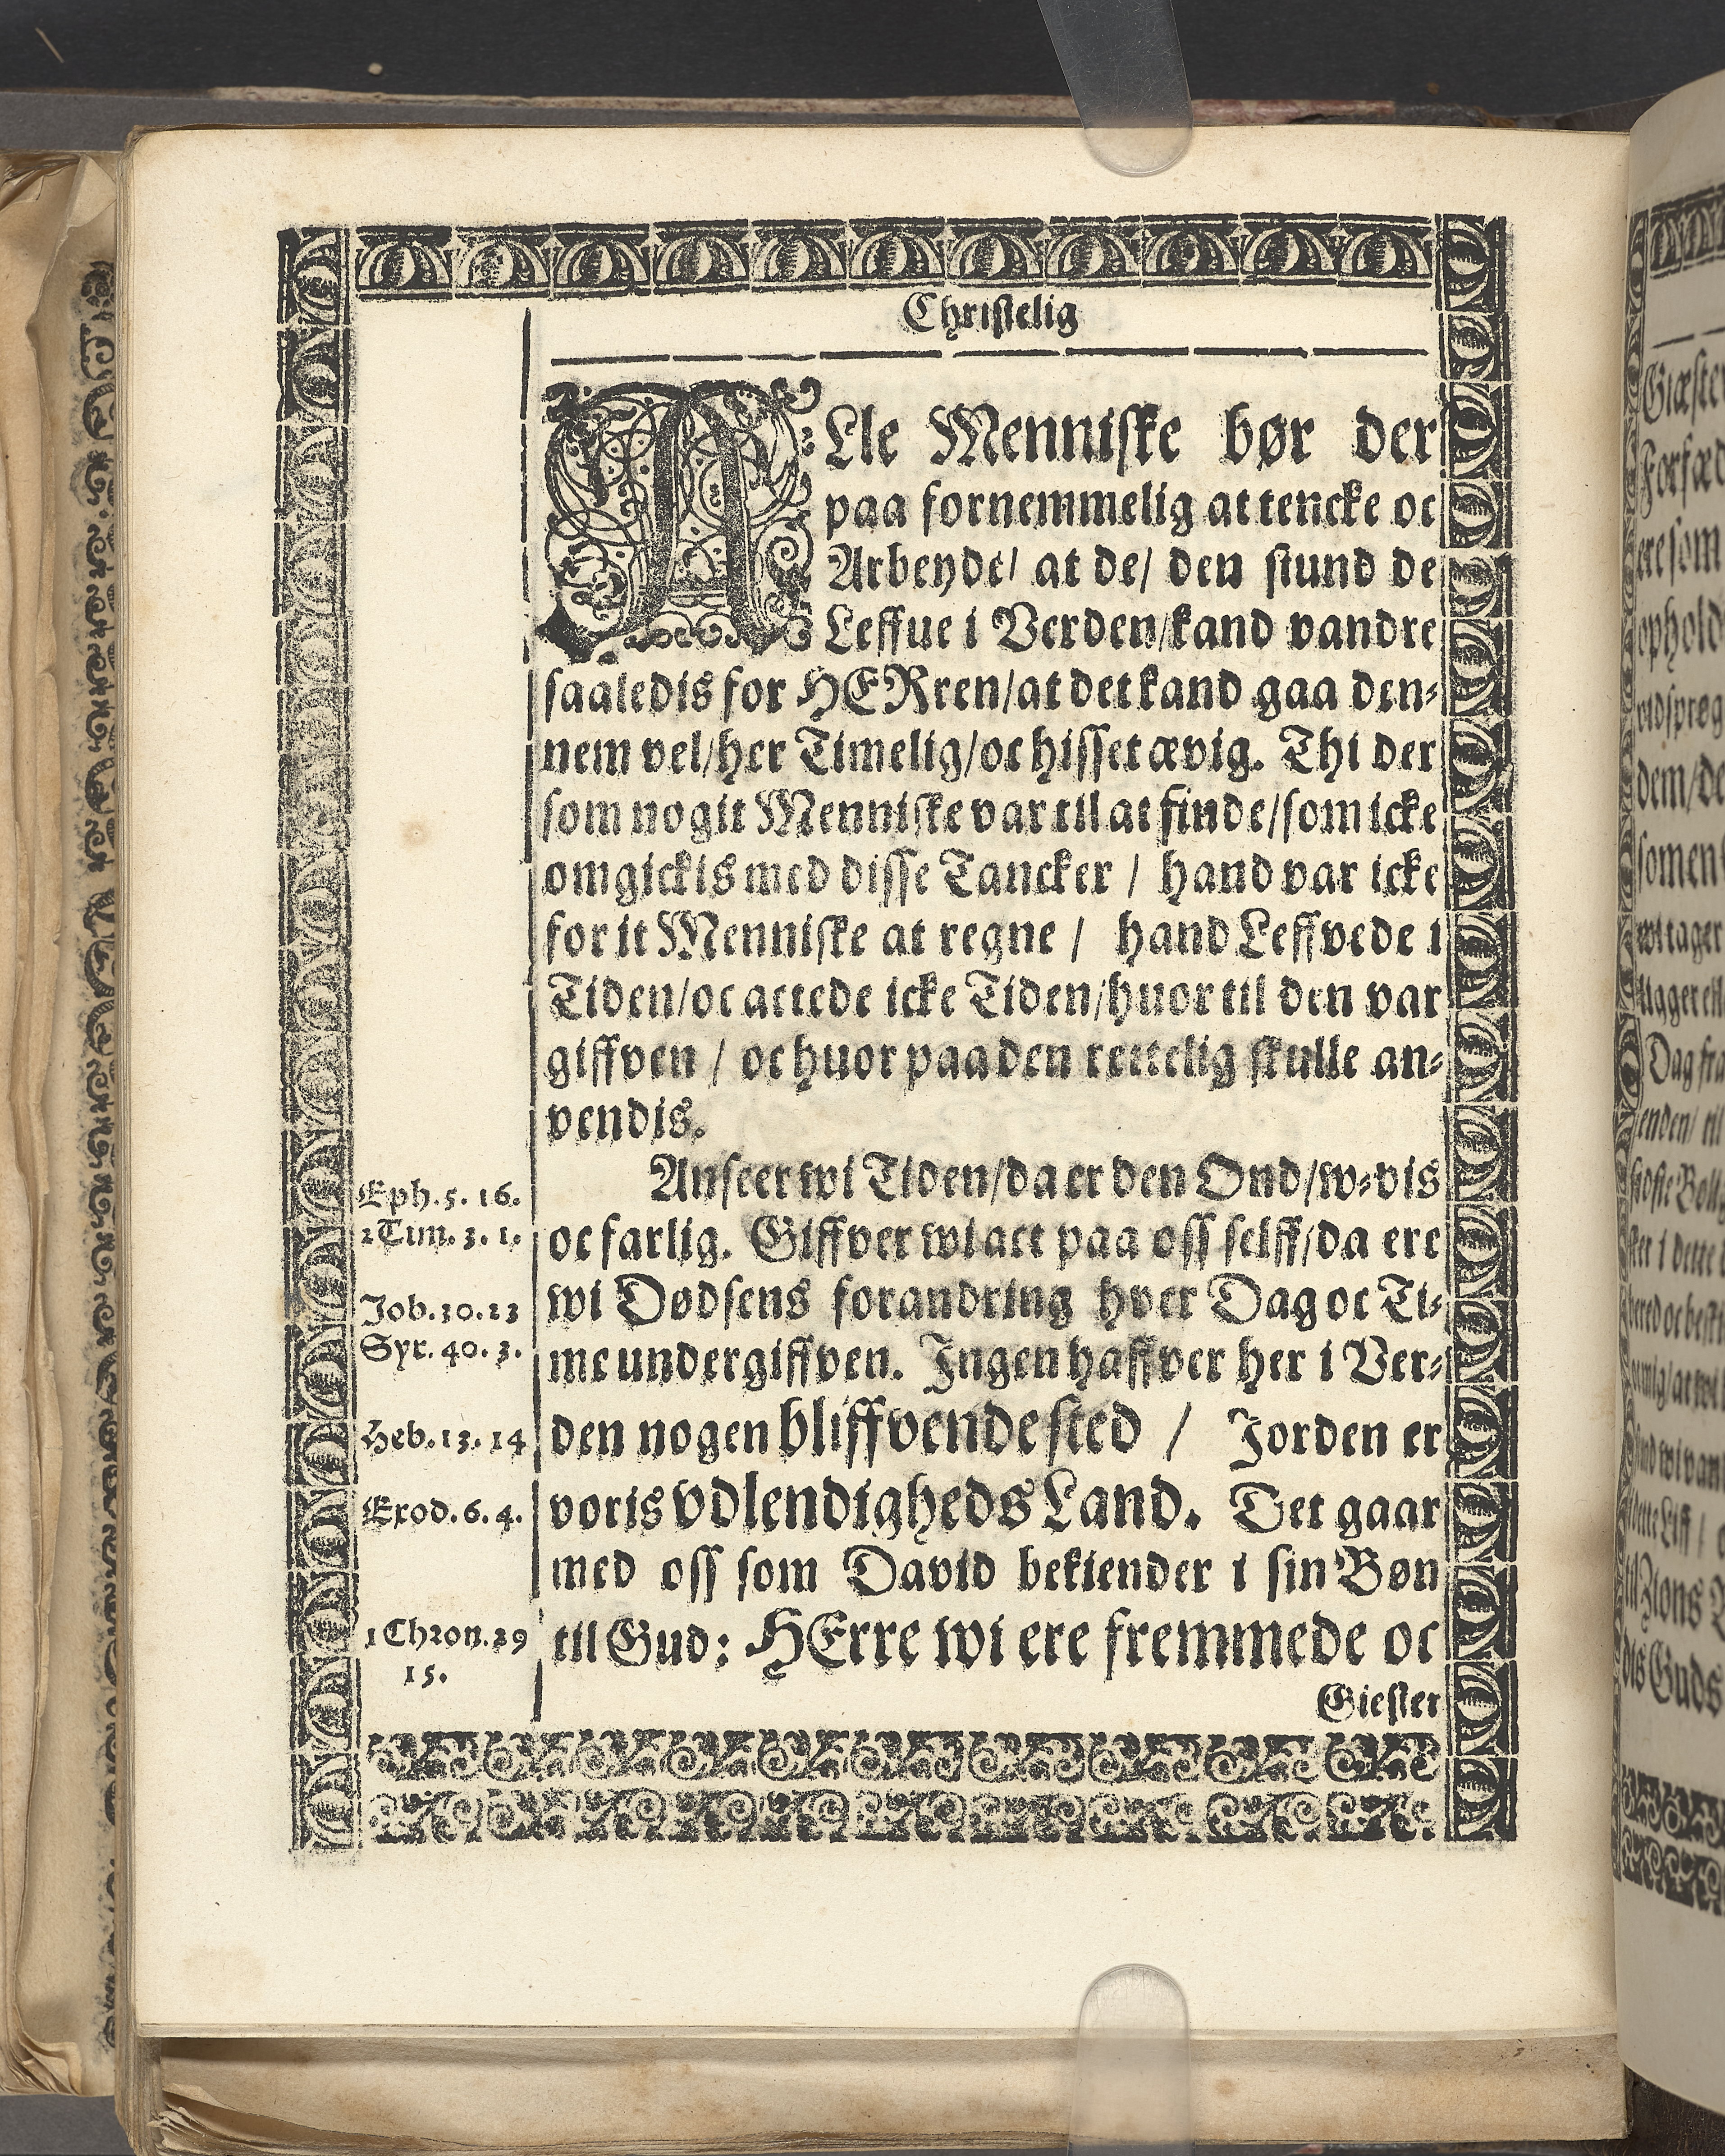 Christelig
ALle Menniske bør der
paa fornemmelig at tencke oc
Arbeyde/ at de/ den stund de
Leffue i Verden/kand vandre
saaledis for HERren/at det kand gaa den-
nem vel/her Timelig/oc hisset ævig. Thi der
som nogit Menniske var til at finde/som icke
omgickis med disse Tancker / hand var icke
for it Menniske at regne / hand Leffvede i
Tiden/oc actede icke Tiden/huor til den var
giffven / oc huor paa den rettelig skulle an-
vendis.
Anseer wi Tiden/da er den Ond/w-vis
oc farlig. Giffver wi act paa oss selff/da ere
wi Dødsens forandring hver Dag oc Ti-
me undergiffven. Ingen haffver her i Ver-
den nogen bliffvende sted / Jorden er
voris vdlendigheds Land. Det gaar
med oss som David bekiender i sin Bøn
til Gud: HErre wi ere fremmede oc
Giester
Eph. 5. 16.
2 Tim. 3. 1.
Job. 30. 23
Syr. 40. 3.
Heb. 13. 14
Exod. 6. 4.
1 Chron. 29
15.